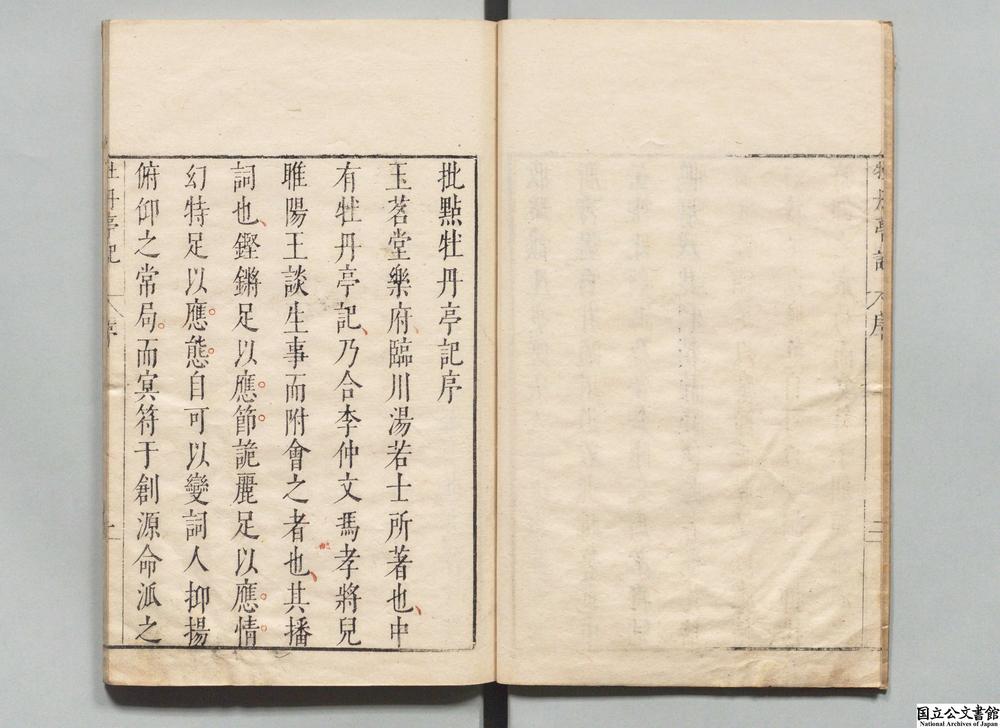 牡丹亭記
序
二
批點牡丹亭記序
玉茗堂樂府臨川湯若士所著也中
有牡丹亭記乃合李仲文馮孝將兒
睢陽王談生事而附會之者也其播
詞也鏗鏘足以應節詭麗足以應情
幻特足以應態自可以變詞人抑揚
俯仰之常局而冥符于創源命派之
牡丹亭記
序
国立公文書館
National Archives of Japan